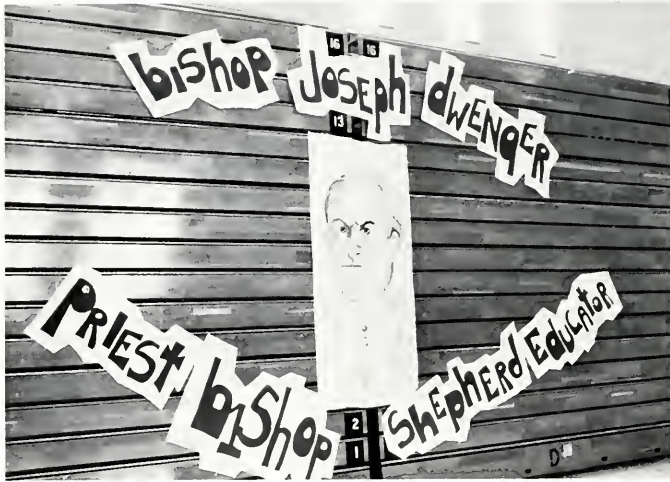 16 16
bishop Joseph dwenger
13
Priest bishop Shepherd Educator
2
1
D